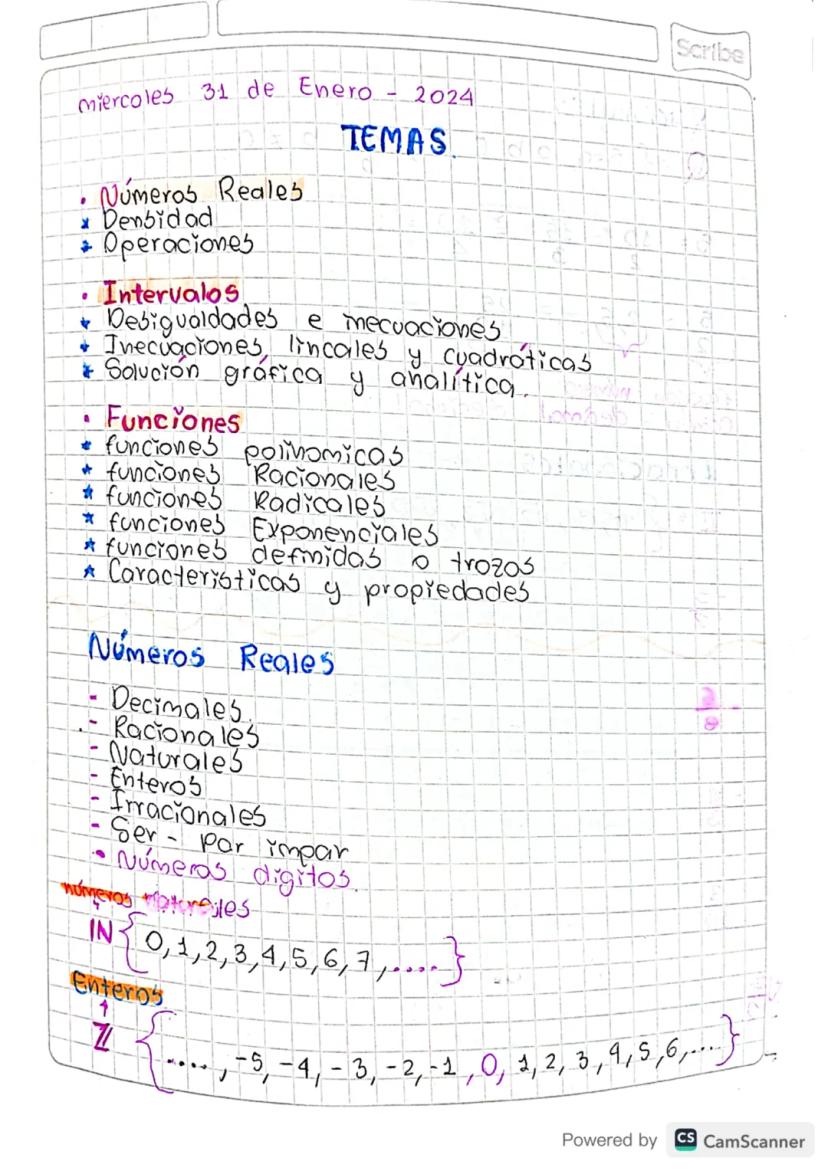 Scribe
miercoles 31 de Enero - 2024
TEMAS.
• Números Reales
* Densidad
* Operaciones
• Intervalos
* Desigualdades e inecuaciones
* Inecuaciones lineales y cuadráticas
* Solución gráfica y analítica.
• Funciones
* funciones polinomicas
* funciones Racionales
* funciones Radicales
* funciones Exponenciales
* funciones definidas a trozos
* Características y propiedades
Números Reales
- Decimales.
- Racionales
- Naturales
- Enteros
- Irracionales
- Ser - Par impar
• Números digitos.
números Naturales
IN { 0, 1, 2, 3, 4, 5, 6, 7, ..... }
Enteros
↑
ℤ { ...., -5, -4, -3, -2, -1, 0, 1, 2, 3, 4, 5, 6, .... }
Powered by CS CamScanner